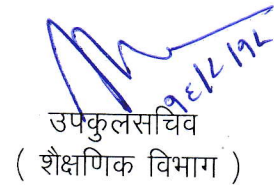 १६/८/१८
उपकुलसचिव
( शैक्षणिक विभाग )